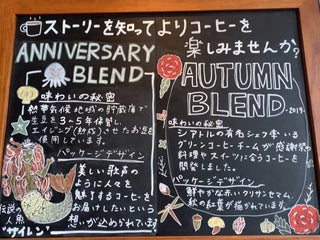 ストーリーを知ってよりコーヒーを
楽しみませんか?
ANNIVERSARY
BLEND
味わいの秘密
熱帯気候地域の貯蔵庫で
生豆を3~5年保管し、
エイジング(熟成)させたお豆を
使用しています。
パッケージデザイン
美しい歌声の
ように人々を
魅了するコーヒーを
お届けしたいという
想いが込められています
伝説の
人魚
"サイレン"
AUTUMN
BLEND
-2019-
味わいの秘密
シアトルの有名シェフ率いる
グリーンコーヒーチームが感謝祭の
料理やスイーツに合うコーヒーを
開発しました。
パッケージデザイン
鮮やかな赤いクリサンセマム、
秋の紅葉が描かれています。